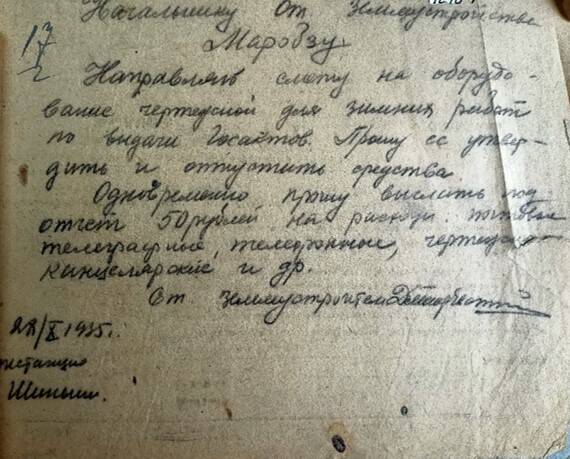 Начальнику От. Землеустройства
17
2
Направляю смету на оборудо-
вание чертежной для зимних работ
по выдачи Госактов. Прошу ее утвер-
дить и отпустить средства
Одновременно прошу выслать под
отчет 50 рублей на расходы почтовые
телеграфные, телефонные, чертежн
канцелярские и др.
Ст. землеустроитель
28/X 1935г.